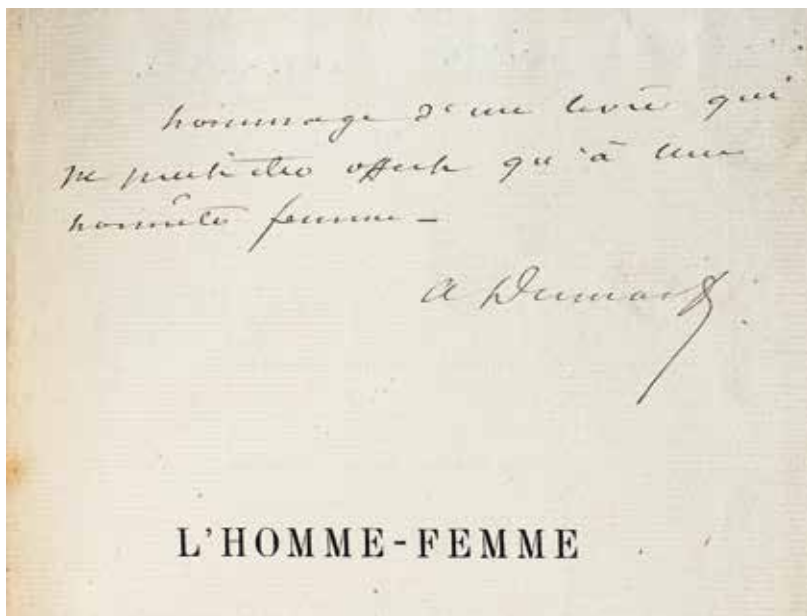 hommage d'un livre qui
ne peut être offert qu'à une
honnête femme_
A Dumas f
L'HOMME-FEMME